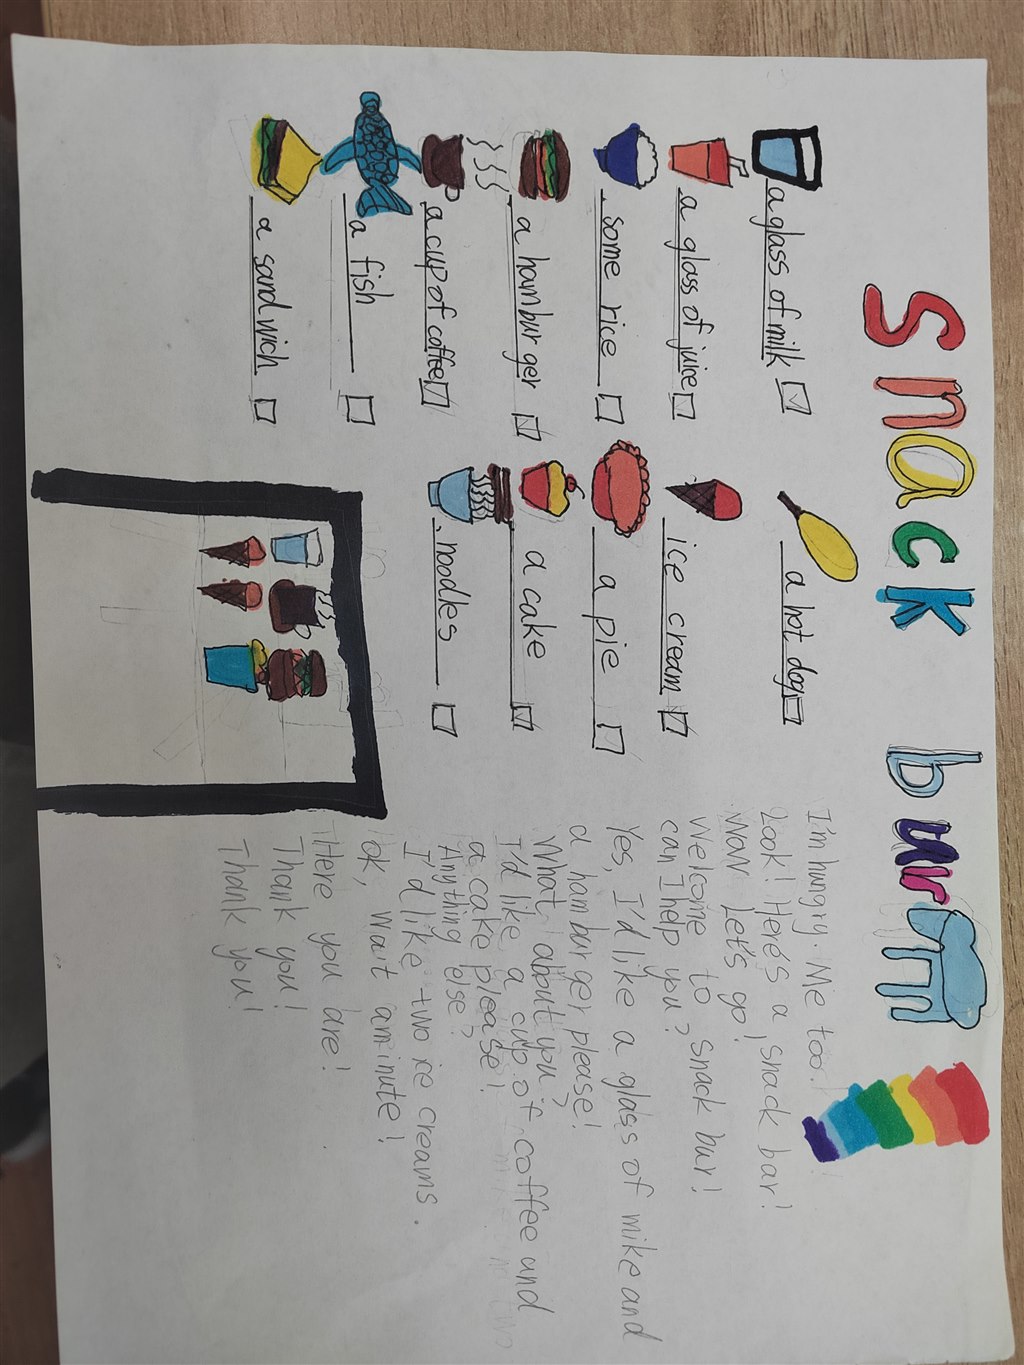 Snack bar
a glass of milk
a glass of juice
some rice
a hamburger
a cup of coffee
a fish
a sandwich
a hot dog
ice cream
a pie
a cake
noodles
I'm hungry. Me too!
Look! Here's a snack bar!
Wow Let's go!
Welcome to snack bar!
can I help you?
Yes, I'd like a glass of mike and
a hamburger please!
What about you?
I'd like a cup of coffee and
a cake please!
Anything else?
I'd like two ice creams.
ok, wait aminute!
There you are!
Thank you!
Thank you!